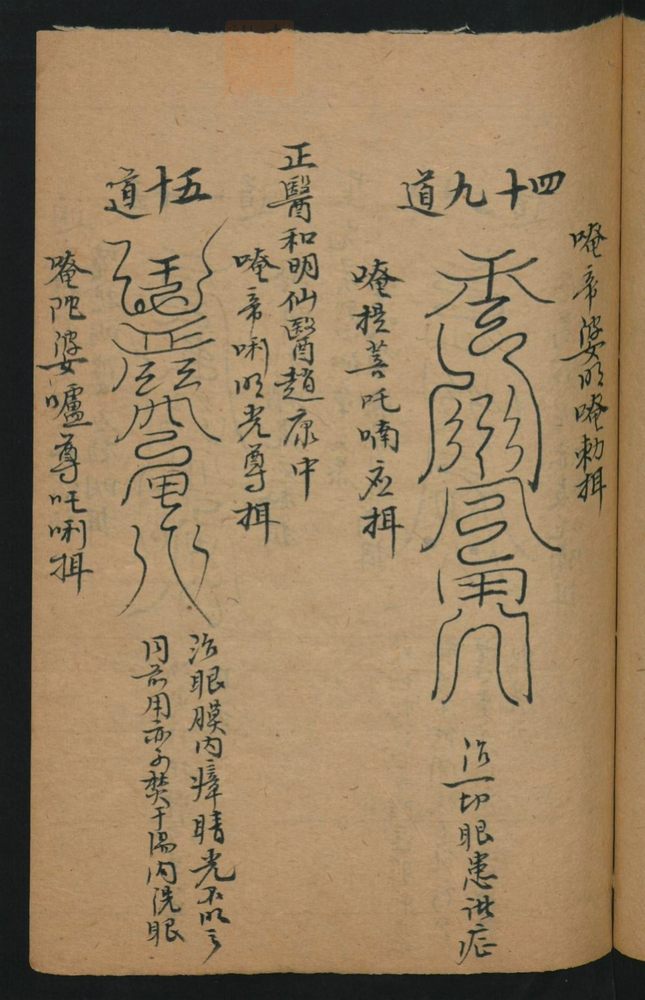 唵帝婆明唵勅揖
四十九道
治一切眼患諸症
唵提菩吒喃 揖
正醫和明仙醫趙康中
唵帝唎明光尊揖
五十道
治眼膜内瘴睛光不明
用亦可焚于湯内洗眼
唵陀婆嚧尊吒唎揖